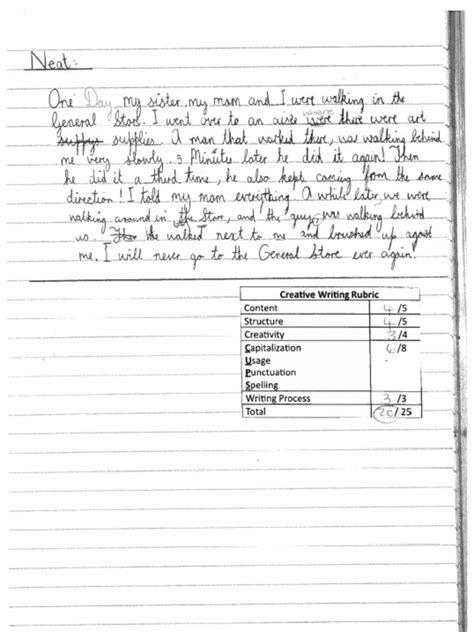 Neat:
One Day, my sister, my mom and I were walking in the
General Store. I went over to an aisle were where there were art
suppys supplies. A man that worked there, was walking behind
me very slowly. 5 Minutes later he did it again! Then
he did it a third time, he also kept coming from the same
direction! I told my mom everything. A while later, we were
walking around in the Store, and the guy, was walking behind
us. Then He walked next to me and brushed up against
me. I will never go to the General Store ever again!
Creative Writing Rubric
Content 4/5
Structure 4/5
Creativity 3/4
Capitalization 6/8
Usage
Punctuation
Spelling
Writing Process 3/3
Total 20/25